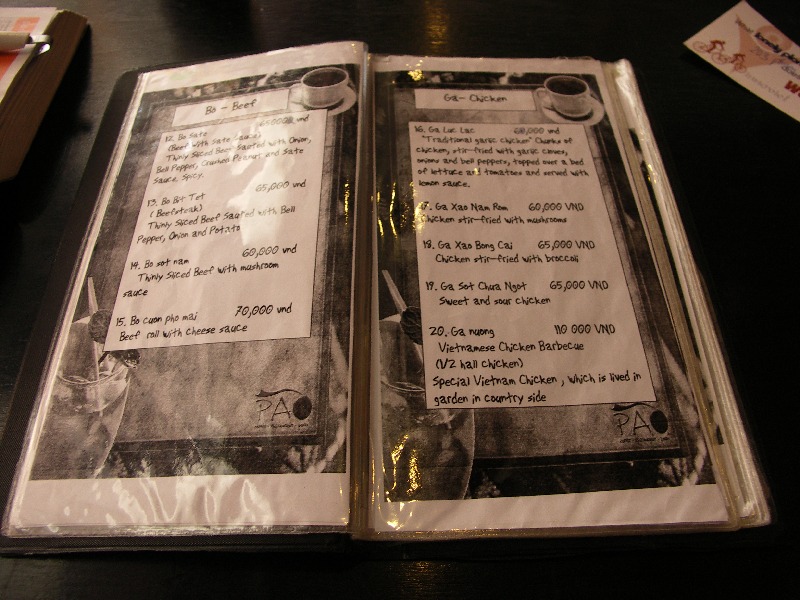 Bo - Beef
12. Bo Sate 65000 vnd
(Beef with Sate Sauce)
Thinly Sliced Beef Sauteed with Onion,
Bell Pepper, Crushed Peanut and Sate
Sauce Spicy.
13. Bo Bit Tet 65,000 vnd
(Beefsteak)
Thinly Sliced Beef Sauteed with Bell
Pepper, Onion and Potato
14. Bo sot nam 60,000 vnd
Thinly Sliced Beef with mushroom
sauce
15. Bo cuon pho mai 70,000 vnd
Beef roll with cheese sauce
PAO
Ga - Chicken
16. Ga Luc Lac vnd
"Traditional garlic chicken" Chunks of
chicken, stir-fried with garlic cloves,
onions and bell peppers, topped over a bed
of lettuce and tomatoes and served with
lemon sauce.
17. Ga Xao Nam Rom 60,000 VND
Chicken stir-fried with mushrooms
18. Ga Xao Bong Cai 65,000 VND
Chicken stir-fried with broccoli
19. Ga Sot Chua Ngot 65,000 VND
Sweet and sour chicken
20. Ga nuong 110 000 VND
Vietnamese Chicken Barbecue
(1/2 hall chicken)
Special Vietnam Chicken , which is lived in
garden in country side
PAO
lonely